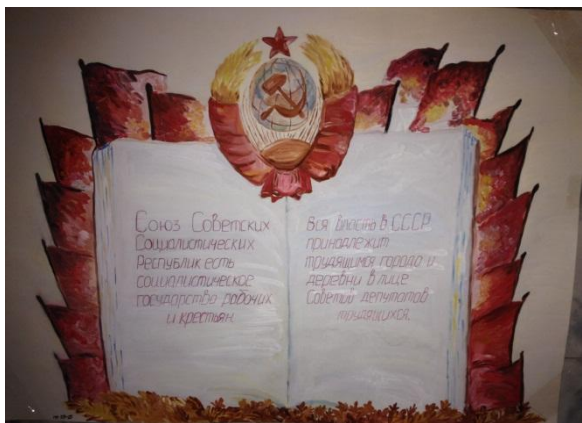 Союз Советских
Социалистических
Республик есть
социалистическое
государство рабочих
и крестьян.
Вся власть в СССР
принадлежит
трудящимся города и
деревни в лице
Советов депутатов
трудящихся.